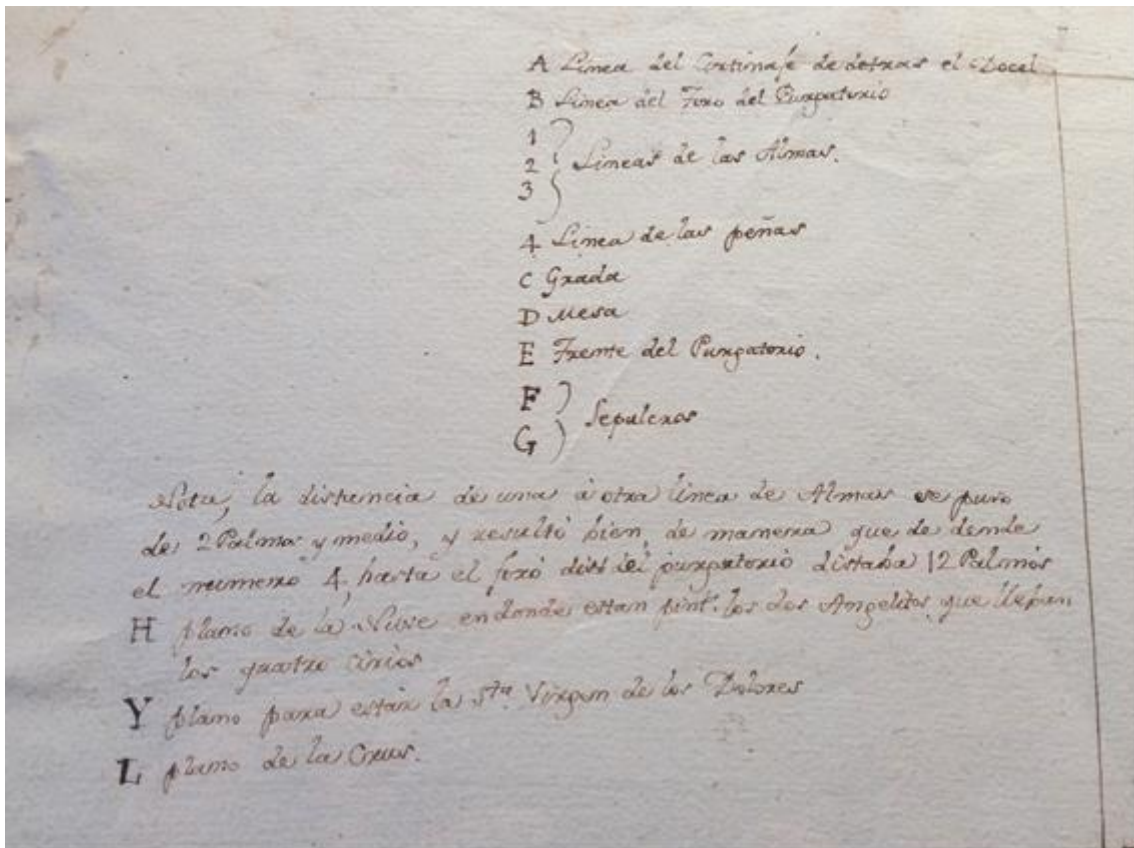 A Linea del Cortinaje de detras el Docel
B Linea del Foro del Purgatorio
1
2 } Lineas de las Almas.
3
4 Linea de las peñas
C Grada
D Mesa
E Frente del Purgatorio.
F
} Sepulcros
G
Nota, la distancia de una à otra linea de Almas se puso
de 2 Palmos y medio, y resultó bien, de manera que de dende
el numero 4, hasta el foro del purgatorio distaba 12 Palmos
H plano de la Nuve en donde estan pint.s los dos Angelitos que llevan
los quatro cirios
Y plano para estàr la S.ta Virgen de los Dolores
L plano de la Crus.